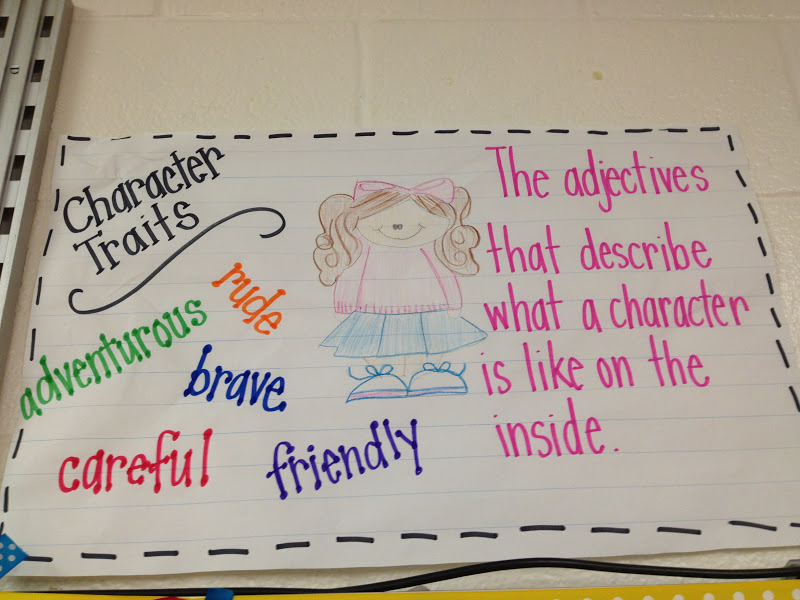 Character
Traits
rude
adventurous
brave
careful
friendly
The adjectives
that describe
what a character
is like on the
inside.